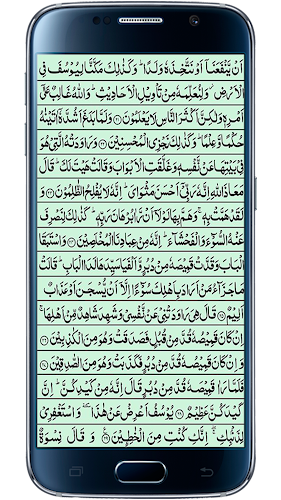 اَنْ يَّنْفَعَنَاۤ اَوْ نَتَّخِذَهٗ وَلَدًا ؕ وَكَذٰلِكَ مَكَّنَّا لِيُوْسُفَ فِى
الْاَرْضِ ؗ وَلِنُعَلِّمَهٗ مِنْ تَاْوِيْلِ الْاَحَادِيْثِ ؕ وَاللّٰهُ غَالِبٌ عَلٰٓى
اَمْرِهٖ وَلٰكِنَّ اَكْثَرَ النَّاسِ لَا يَعْلَمُوْنَ ۝ وَلَمَّا بَلَغَ اَشُدَّهٗۤ اٰتَيْنٰهُ
حُكْمًا وَّعِلْمًا ؕ وَكَذٰلِكَ نَجْزِى الْمُحْسِنِيْنَ ۝ وَرَاوَدَتْهُ الَّتِىْ هُوَ
فِىْ بَيْتِهَا عَنْ نَّفْسِهٖ وَغَلَّقَتِ الْاَبْوَابَ وَقَالَتْ هَيْتَ لَكَ ؕ قَالَ
مَعَاذَ اللّٰهِ اِنَّهٗ رَبِّىْۤ اَحْسَنَ مَثْوَاىَ ؕ اِنَّهٗ لَا يُفْلِحُ الظّٰلِمُوْنَ ۝ وَ
لَقَدْ هَمَّتْ بِهٖ ۚ وَهَمَّ بِهَا لَوْلَاۤ اَنْ رَّاٰ بُرْهَانَ رَبِّهٖ ؕ كَذٰلِكَ لِنَصْرِفَ
عَنْهُ السُّوْٓءَ وَالْفَحْشَآءَ ؕ اِنَّهٗ مِنْ عِبَادِنَا الْمُخْلَصِيْنَ ۝ وَاسْتَبَقَا
الْبَابَ وَقَدَّتْ قَمِيْصَهٗ مِنْ دُبُرٍ وَّاَلْفَيَا سَيِّدَهَا لَدَا الْبَابِ ؕ قَالَتْ
مَا جَزَآءُ مَنْ اَرَادَ بِاَهْلِكَ سُوْٓءًا اِلَّاۤ اَنْ يُّسْجَنَ اَوْ عَذَابٌ
اَلِيْمٌ ۝ قَالَ هِىَ رَاوَدَتْنِىْ عَنْ نَّفْسِىْ وَشَهِدَ شَاهِدٌ مِّنْ اَهْلِهَا ۚ
اِنْ كَانَ قَمِيْصُهٗ قُدَّ مِنْ قُبُلٍ فَصَدَقَتْ وَهُوَ مِنَ الْكٰذِبِيْنَ ۝
وَاِنْ كَانَ قَمِيْصُهٗ قُدَّ مِنْ دُبُرٍ فَكَذَبَتْ وَهُوَ مِنَ الصّٰدِقِيْنَ ۝
فَلَمَّا رَاٰ قَمِيْصَهٗ قُدَّ مِنْ دُبُرٍ قَالَ اِنَّهٗ مِنْ كَيْدِكُنَّ ؕ اِنَّ
كَيْدَكُنَّ عَظِيْمٌ ۝ يُوْسُفُ اَعْرِضْ عَنْ هٰذَا ٚ وَاسْتَغْفِرِىْ
لِذَنْۢبِكِ ۖۚ اِنَّكِ كُنْتِ مِنَ الْخٰطِـِٕيْنَ ۝ وَ قَالَ نِسْوَةٌ